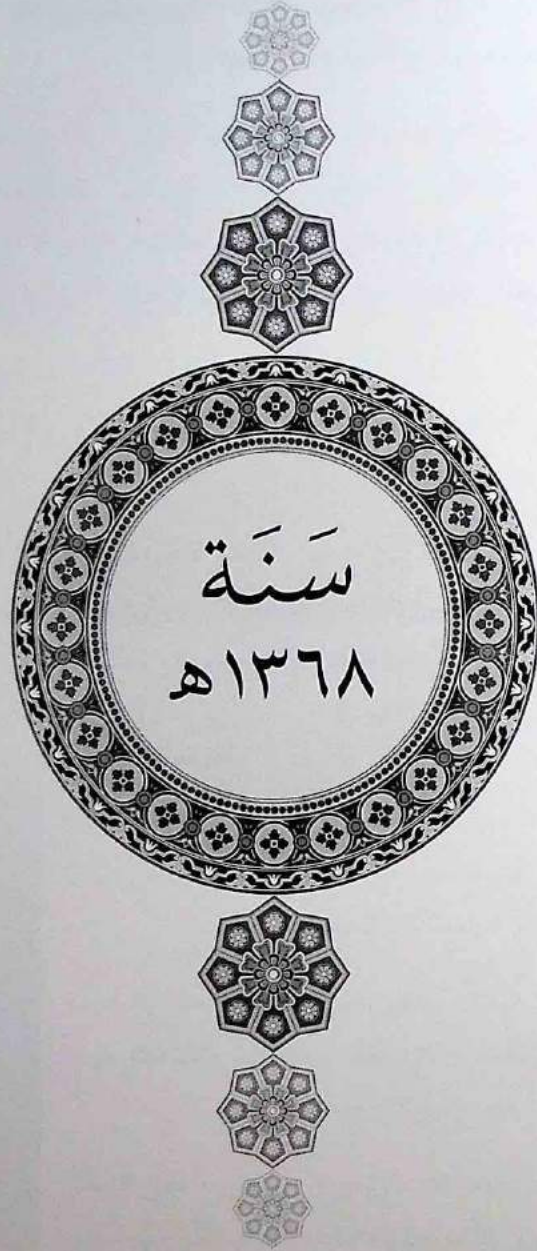 سَنَة
١٣٦٨ه